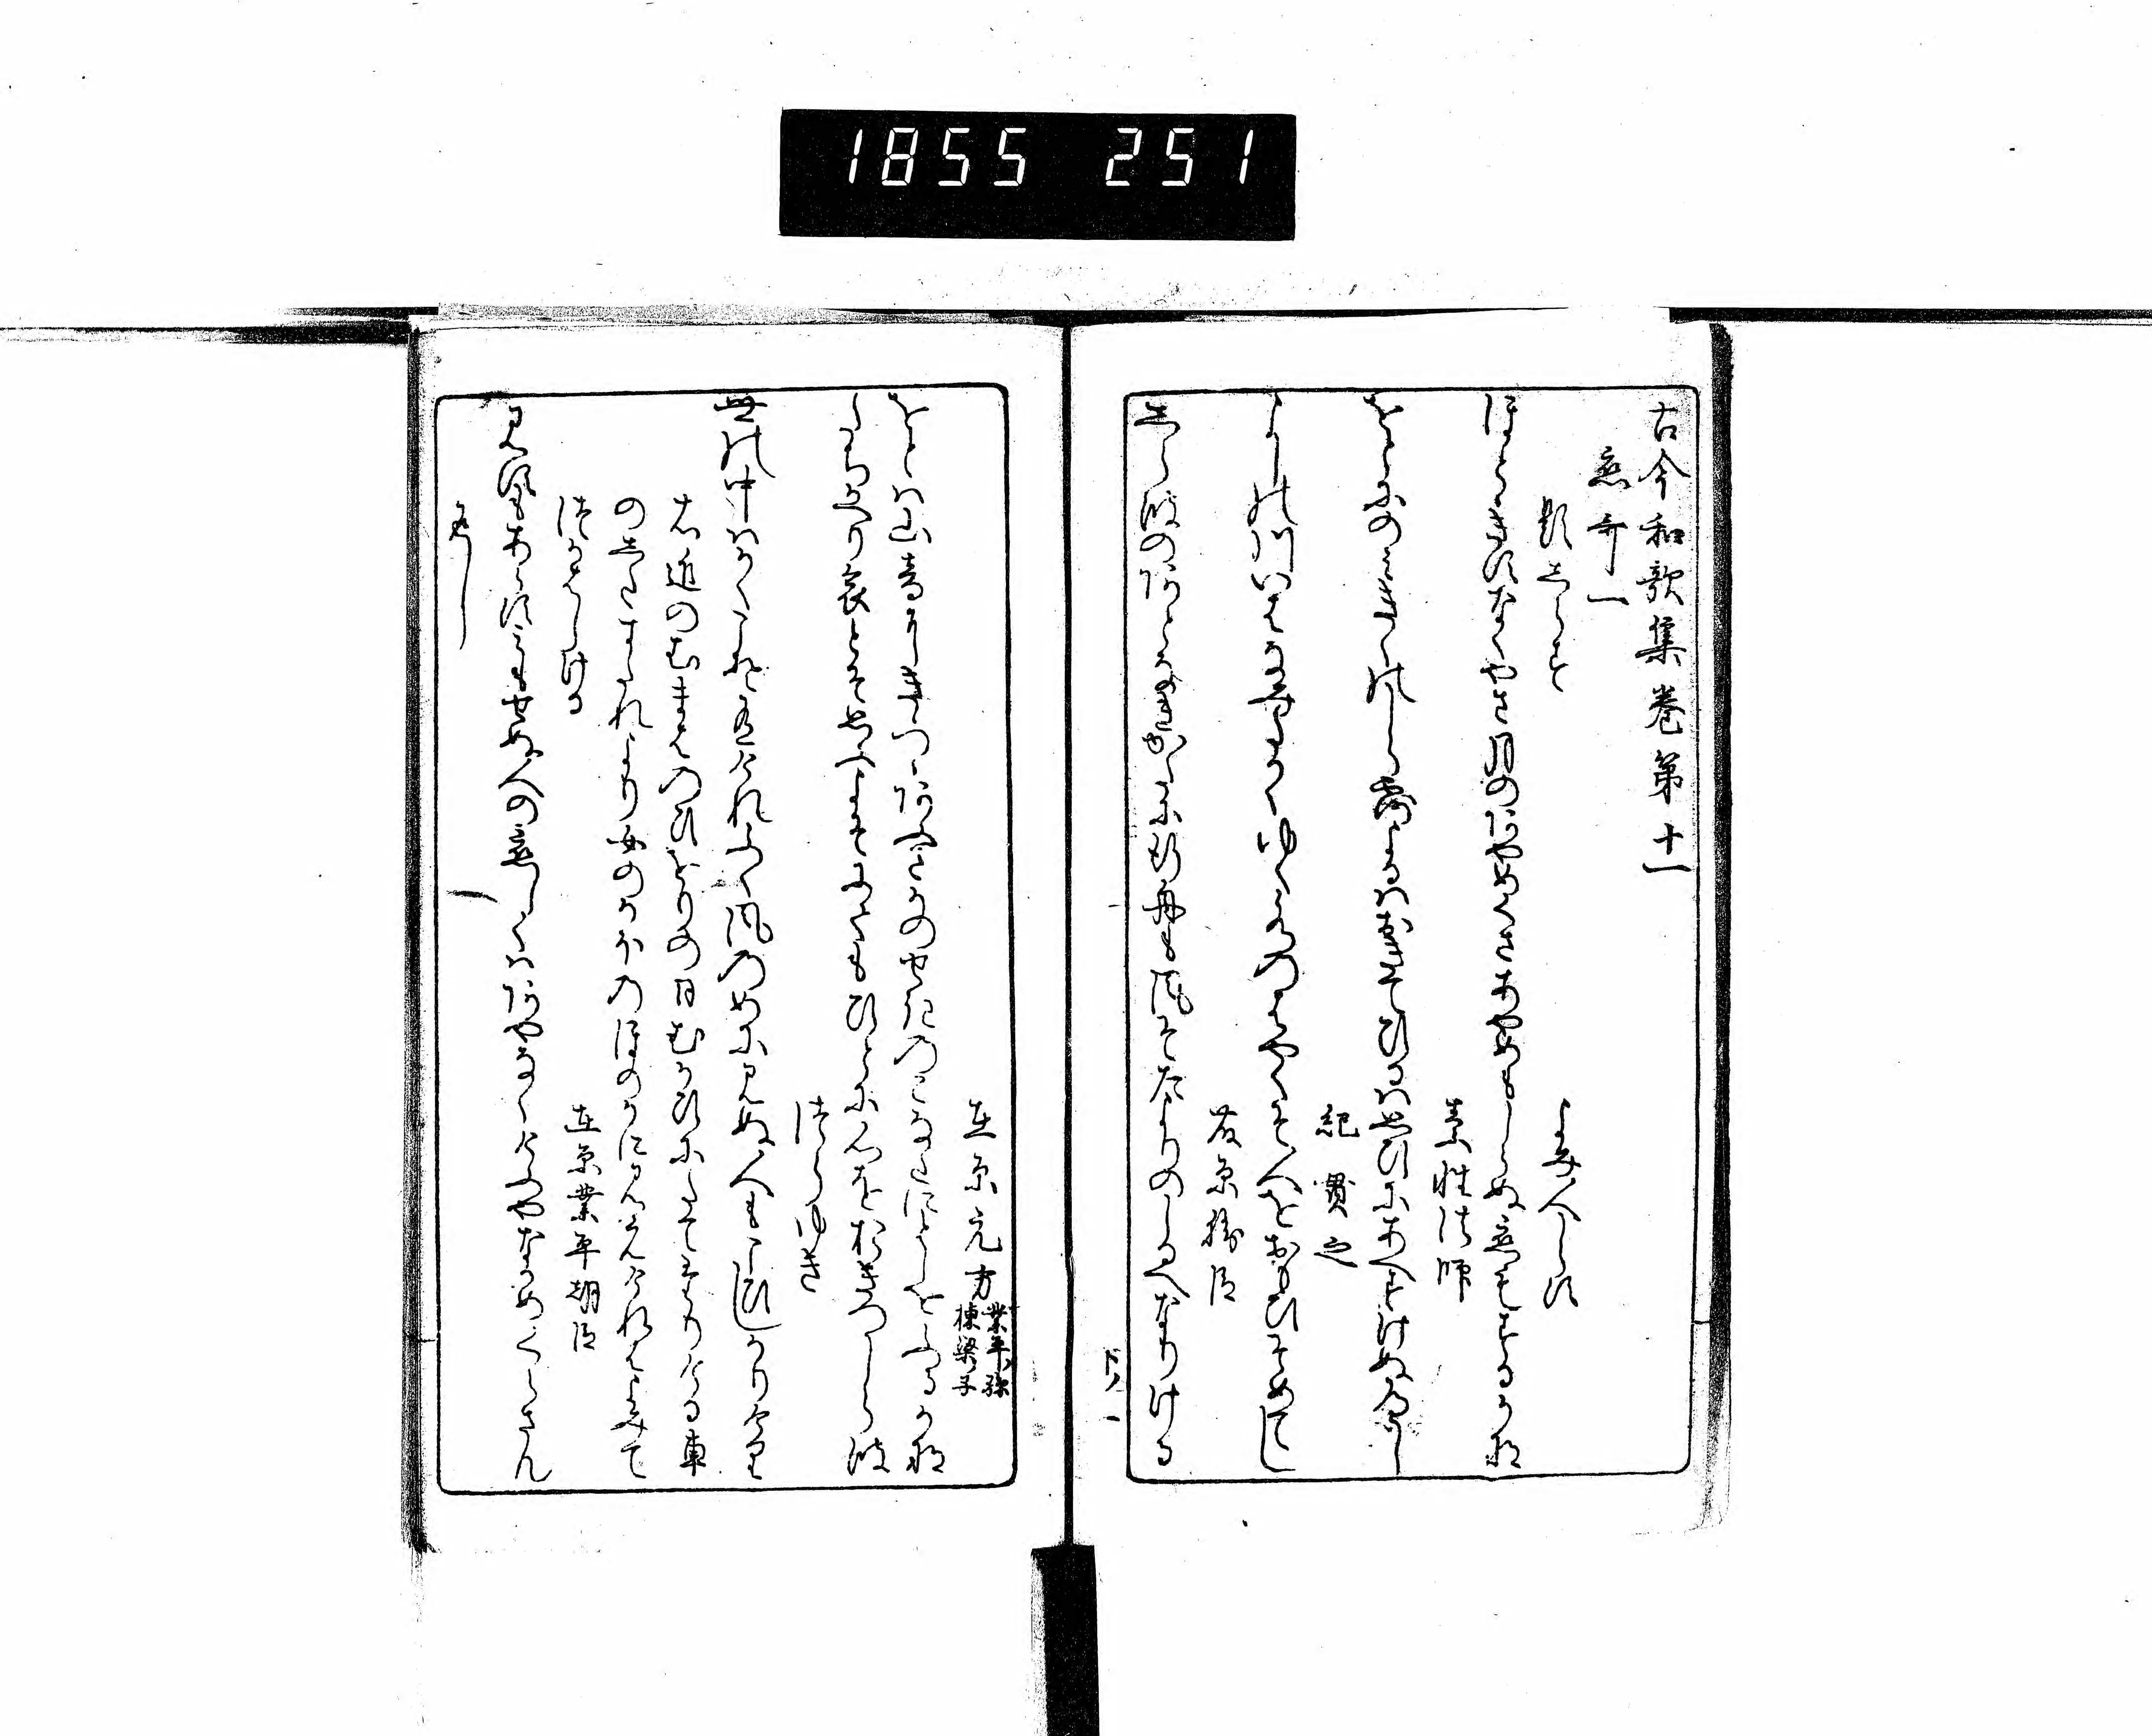 1855 251
古今和歌集巻第十一
恋哥一
題しらす
よみ人しらす
ほとゝきすなくやさ月のあやめくさあやめもしらぬ恋もするかな
素性法師
をとにのみきくのしら露よるはおきてひるは思ひにあへすけぬへし
紀貫之
よしの川いはなみたかくゆく水のはやくそ人をおもひそめてし
藤原勝臣
しら波のあとなきかたに行舟も風そたよりのしるへなりける
在原元方業平孫棟梁子
をとは山音にきゝつゝあふさかのせきのこなたにとしをふるかな
たちかへり哀とそ思ふよそにても人に心をおきつしら波
つらゆき
世の中はかくこそ有けれふく風のめに見ぬ人もこひしかりけり
右近のむまはのひをりの日むかひにたてたりける車
のしたすたれより女のかほのほのかに見えけれはよみて
つかはしける
在原業平朝臣
見すもあらす見もせぬ人の恋しくはあやなくけふやなかめくらさん
返し